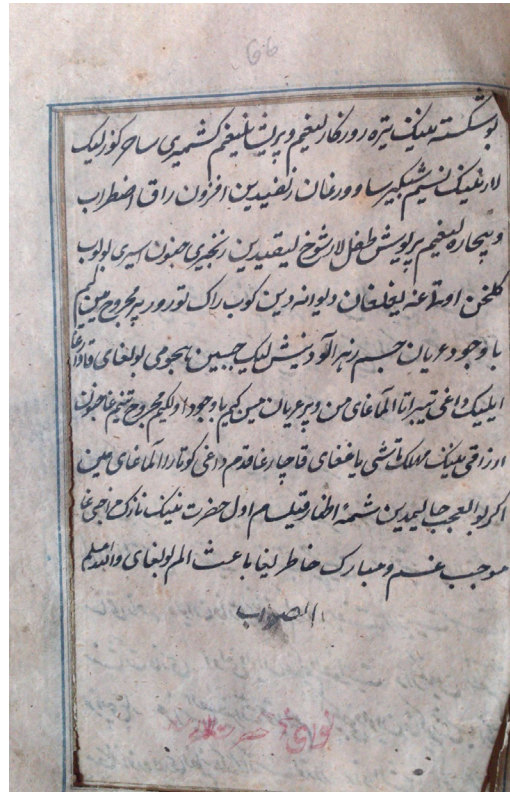 66
بو شکسته نینک تیره روزکارلیغیم و پریشانلیغیم کشمیری ساحر کوزلیک
لارنینک نسیم شبکیر ساوورغان زلفیدین افزون راق اضطراب
و بیچاره لیغیم پریوش طفل لار شوخ لیقیدین زنجیری جنون اسیری بولوب
کلخن اوتاغه یغلغان دیوانه دین کوب راک تورور یه مجروح مین کیم
با وجود عریان جسم زهرآلود نیش لیک جبین هجومی بولغای قاداغا
ایلیک داغی تیبراتا آلماغای من و پر عریان مین کیم باوجود اولکیم مجروح تنیم غا جنون
اوزاقی نینک مهلک تاشی یاغغای قاچارغا قدم داغی کوتارا آلماغای مین
اکر بوالعجب حالیمدین شمهٔ اظهار قیلسام اول حضرت نینک نازک مزاجی غا
موجب غم و مبارک خاطریغا باعث الم بولغای والله اعلم
بالصواب